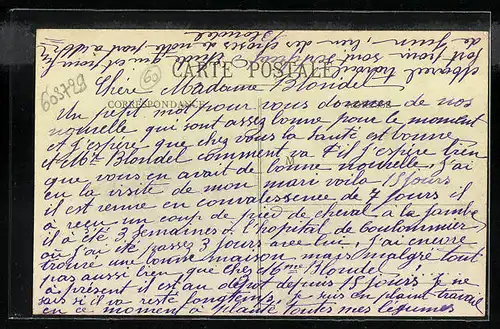 CARTE POSTALE
CORRESPONDANCE
Chère Madame Blondel
Un petit mot pour vous donner de nos
nouvelle qui sont assez bonne pour le moment
et j'espére que chez vous la santé est bonne
et Mr Blondel comment va t'il j'espère bien
que vous en avait de bonne nouvelle, j'ai
eu la visite de mon mari voila 15 jours
il est venue en convalescence de 7 jours il
a reçu un coup de pied de cheval à la jambe
il à été 3 semaines à l'hopital de Coulommier
où j'ai été passez 3 jours avec lui, j'ai encore
trouvé une bonne maison mais malgré tout
pas aussi bien que chez Mme Blondel
à présent il est au dépot depuis 15 jours je ne
sais si il va resté longtemps, je suis en plaint travail
en ce moment à planté toutes mes légumes
et
fort bien sont
de Juin, bien des choses de notre part à
Blondel
659729